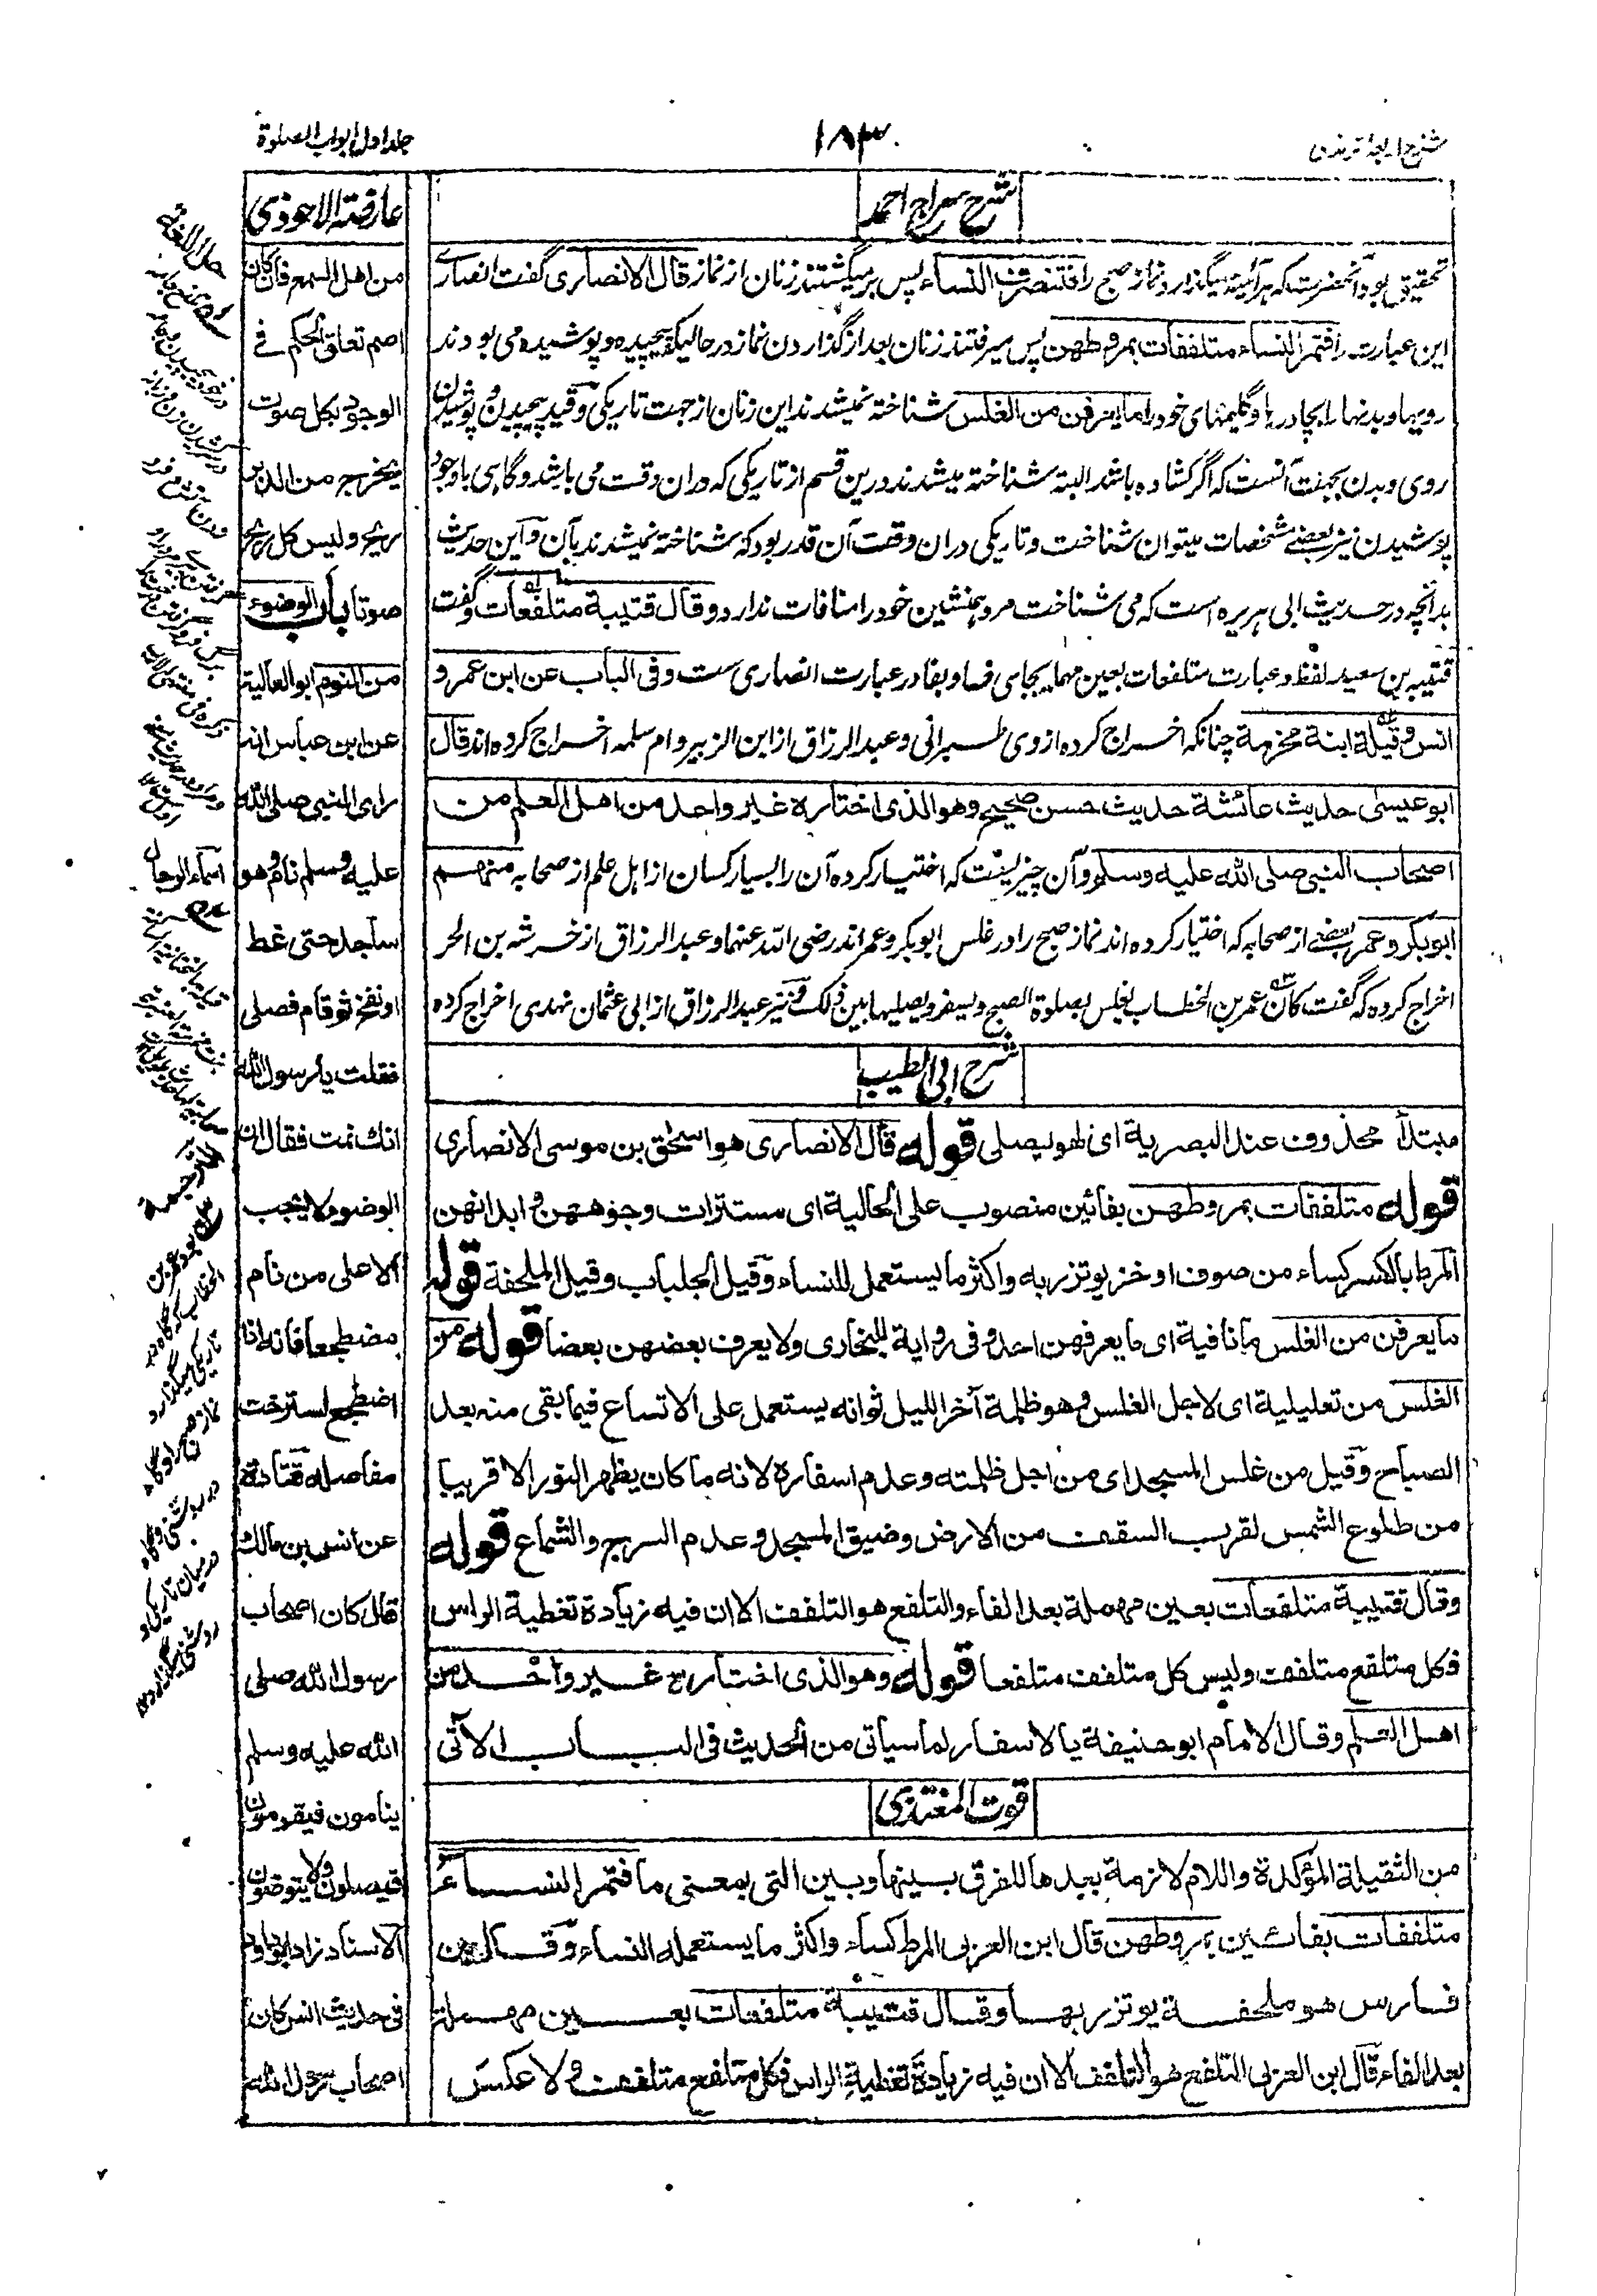 شرح اربعۀ ترمذی
۱۸۳
جلد اول ابواب الصلوة
شرح سراج احمد
تحقیق بود آنحضرت که هر آئینه میگذارد نماز صبح را فتنصرف النساء پس برمیگشتند زنان از نماز قال الانصاری گفت انصاری
این عبارت را فتمر النساء متلففات بمروطهن پس میرفتند زنان بعد از گذاردن نماز در حالیکه پیچیده و پوشیده می بودند
رویها و بدنها را بچادرها و گلیمهای خود را ما یعرفن من الغلس شناخته نمیشدند این زنان از جهت تاریکی و قید پیچیدن و پوشیدن
روی و بدن بجهت آنست که اگر کشاده باشد البته شناخته میشدند درین قسم از تاریکی که دران وقت می باشد و گاهی باوجود
پوشیدن نیز بعضی مشخصات میتوان شناخت و تاریکی دران وقت آن قدر بود که شناخته نمیشدند بآن و این حدیث
بدانچه در حدیث ابی هریره است که می شناخت مرد همنشین خود را منافات ندارد وقال قتیبة متلفعات و گفت
قتیبه بن سعید لفظ و عبارت متلفعات بعین مهمله بجای فا و بفا در عبارت انصاری ست وفی الباب عن ابن عمر و
انس وقیلة ابنة مخرمة چنانکه اخراج کرده از وی طبرانی و عبدالرزاق از ابن الزبیر و ام سلمه اخراج کرده اند قال
ابو عیسی حدیث عائشة حدیث حسن صحیح وهو الذی اختاره غیر واحد من اهل العلم من
اصحاب النبی صلی الله علیه وسلم و آن چیزیست که اختیار کرده آن را بسیار کسان از اهل علم از صحابه منهم
ابوبکر وعمر بعضی از صحابه که اختیار کرده اند نماز صبح را در غلس ابوبکر و عمر اند رضی الله عنهما و عبدالرزاق از خرشه بن الحر
اخراج کرده که گفت کان عمر بن الخطاب یغلس بصلوة الصبح ویسفر ویصلیها بین ذلک و نیز عبدالرزاق از ابی عثمان نهدی اخراج کرده
شرح ابی الطیب
مبتدأ محذوف عند البصریة ای لهو یصلی قوله قال الانصاری هو اسحق بن موسی الانصاری
قوله متلففات بمروطهن بفائین منصوب علی الحالیة ای مستترات وجوههن وابدانهن
المرط بالکسر کساء من صوف او خز یوتزر به واکثر ما یستعمل للنساء وقیل الجلباب وقیل الملحفة قوله
ما یعرفن من الغلس ما نافیة ای ما یعرفهن احد وفی روایة للبخاری ولا یعرف بعضهن بعضا قوله من
الغلس من تعلیلیة ای لاجل الغلس وهو ظلمة آخر اللیل ثم انه یستعمل علی الاتساع فیما بقی منه بعد
الصباح وقیل من غلس المسجد ای من اجل ظلمته وعدم اسفاره لانه ما کان یظهر النور الا قریبا
من طلوع الشمس لقرب السقف من الارض وضیق المسجد وعدم السرج والشماع قوله
وقال قتیبة متلفعات بعین مهملة بعد الفاء والتلفع هو التلفف الا ان فیه زیادة تغطیة الراس
فکل متلفع متلفف ولیس کل متلفف متلفعا قوله وهو الذی اختاره غیر واحد من
اهل العلم وقال الامام ابوحنیفة بالاسفار لما سیاتی من الحدیث فی الباب الآتی
قوت المغتذی
من الثقیلة المؤکدة واللام لازمة بعدها للفرق بینها وبین التی بمعنی ما فتمر النساء
متلففات بفائین بمروطهن قال ابن العربی المرط کساء واکثر ما یستعمله النساء وقال ابن
فارس هو ملحفة یوتزر بها وقال قتیبة متلفعات بعین مهملة
بعد الفاء قال ابن العربی التلفع هو التلفف الا ان فیه زیادة تغطیة الراس فکل متلفع متلفف ولا عکس
عارضة الاحوذی
من اهل السمع فان کان
اصم تعلق الحکم فی
الوجود بکل صوت
یخرج من الدبر
ریح ولیس کل ریح
صوتا باب الوضوء
من النوم ابوالعالیة
عن ابن عباس انه
رای النبی صلی الله
علیه وسلم نام وهو
ساجد حتی غط
او نفخ ثم قام فصلی
فقلت یا رسول الله
انک نمت فقال ان
الوضوء لا یجب
الا علی من نام
مضطجعا فانه اذا
اضطجع استرخت
مفاصله قتادة
عن انس بن مالک
قال کان اصحاب
رسول الله صلی
الله علیه وسلم
ینامون فیقومون
فیصلون ولا یتوضؤن
الاسناد زاد ابوداود
فی حدیث انس کان
اصحاب رسول الله
حل اللغة
اسماء الرجال
الترجمة
بود عمر بن
الخطاب که گاه در
تاریکی میگذارد
نماز صبح را و گاه
در روشنی و گاه
درمیان تاریکی و
روشنی میگذارد